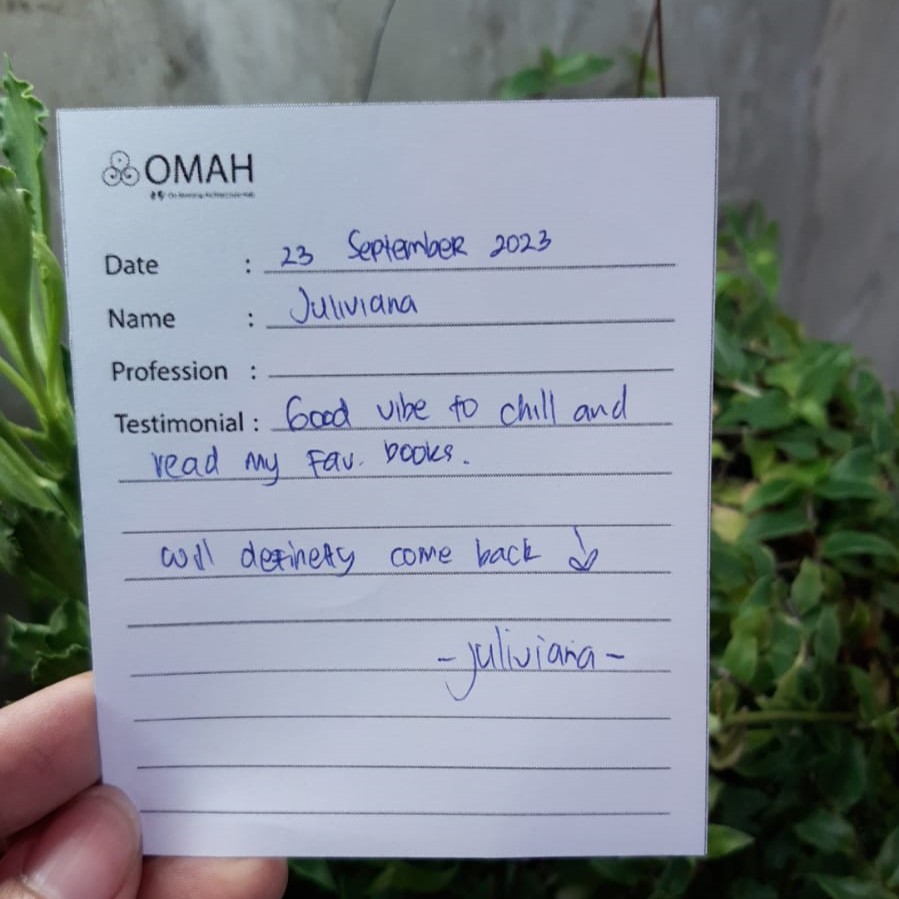 OMAH
Date : 23 September 2023
Name : Juliviana
Profession :
Testimonial : Good vibe to chill and
read my Fav. books.
will definetly come back
-juliviana-